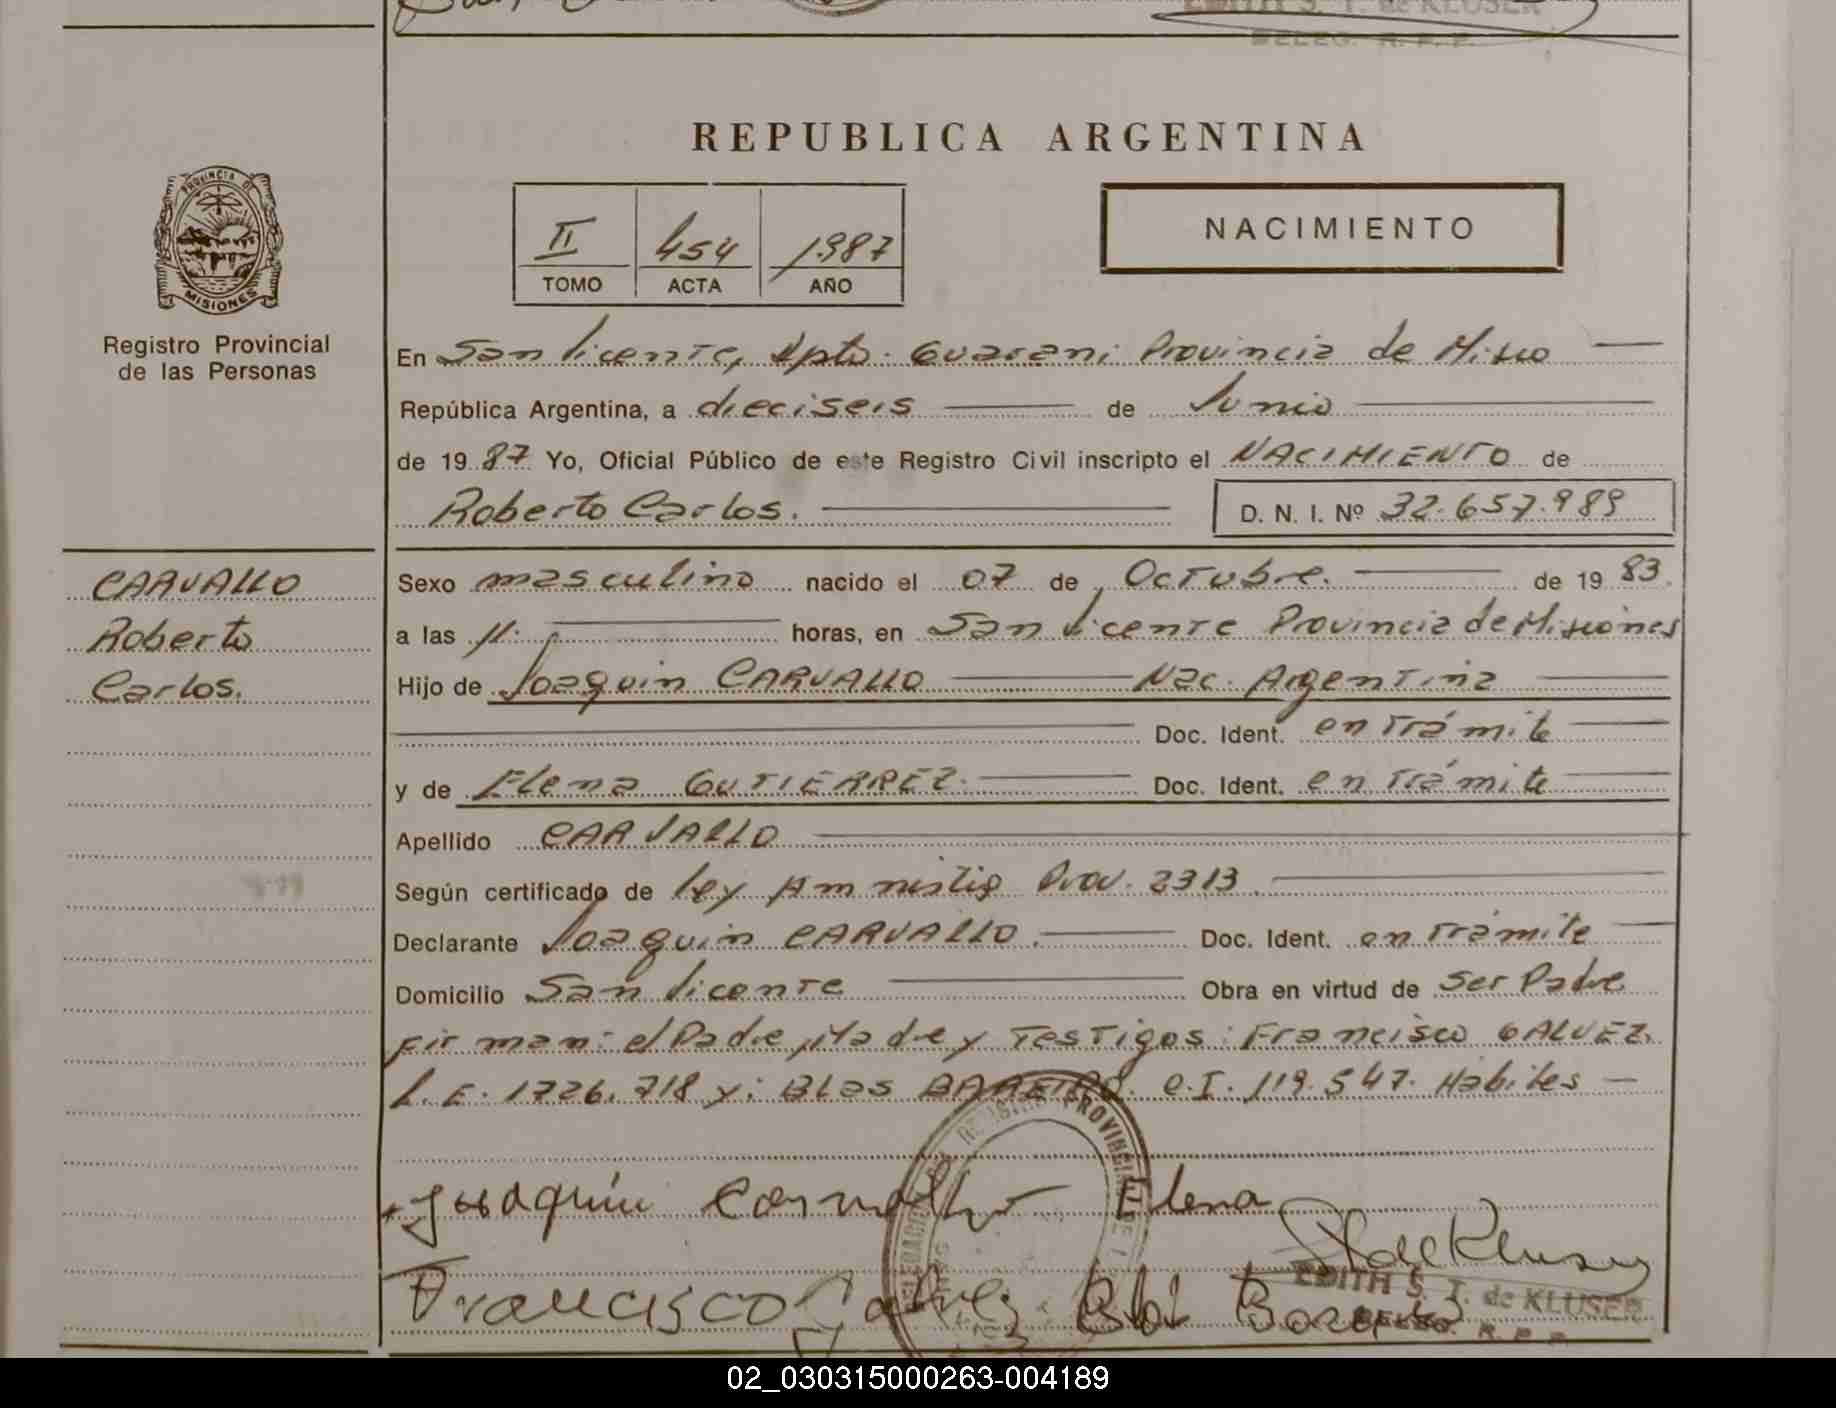 EDITH S. T. de KLUSER
DELEG. R. P. P.
REPUBLICA ARGENTINA
PROVINCIA DE
MISIONES
Registro Provincial
de las Personas
II 454 1987
TOMO ACTA AÑO
NACIMIENTO
En San Vicente, Dpto. Guarani Provincia de Misio
República Argentina, a dieciseis de Junio
de 1987 Yo, Oficial Público de este Registro Civil inscripto el NACIMIENTO de
Roberto Carlos. D. N. I. Nº 32.657.989
CARVALLO
Roberto
Carlos.
Sexo masculino nacido el 07 de Octubre. de 1983.
a las 11. horas, en San Vicente Provincia de Misiones
Hijo de Joaquin CARVALLO Nac. Argentina
Doc. Ident. en trámite
y de Elena GUTIERREZ. Doc. Ident. en trámite
Apellido CARVALLO
Según certificado de ley Amnistia Prov. 2313
Declarante Joaquin CARVALLO. Doc. Ident. en trámite
Domicilio San Vicente Obra en virtud de ser Padre
firman: el Padre, Madre y Testigos: Francisco GALVEZ.
L.E. 1726.718 y: Blas BAREIRO. C.I. 119.547. Habiles
REGISTRO PROVINCIAL DE
Joaquin Carvallo Elena
Francisco Galvez Blas
EDITH S. T. de KLUSER
DELEG. R. P. P.
02_030315000263-004189